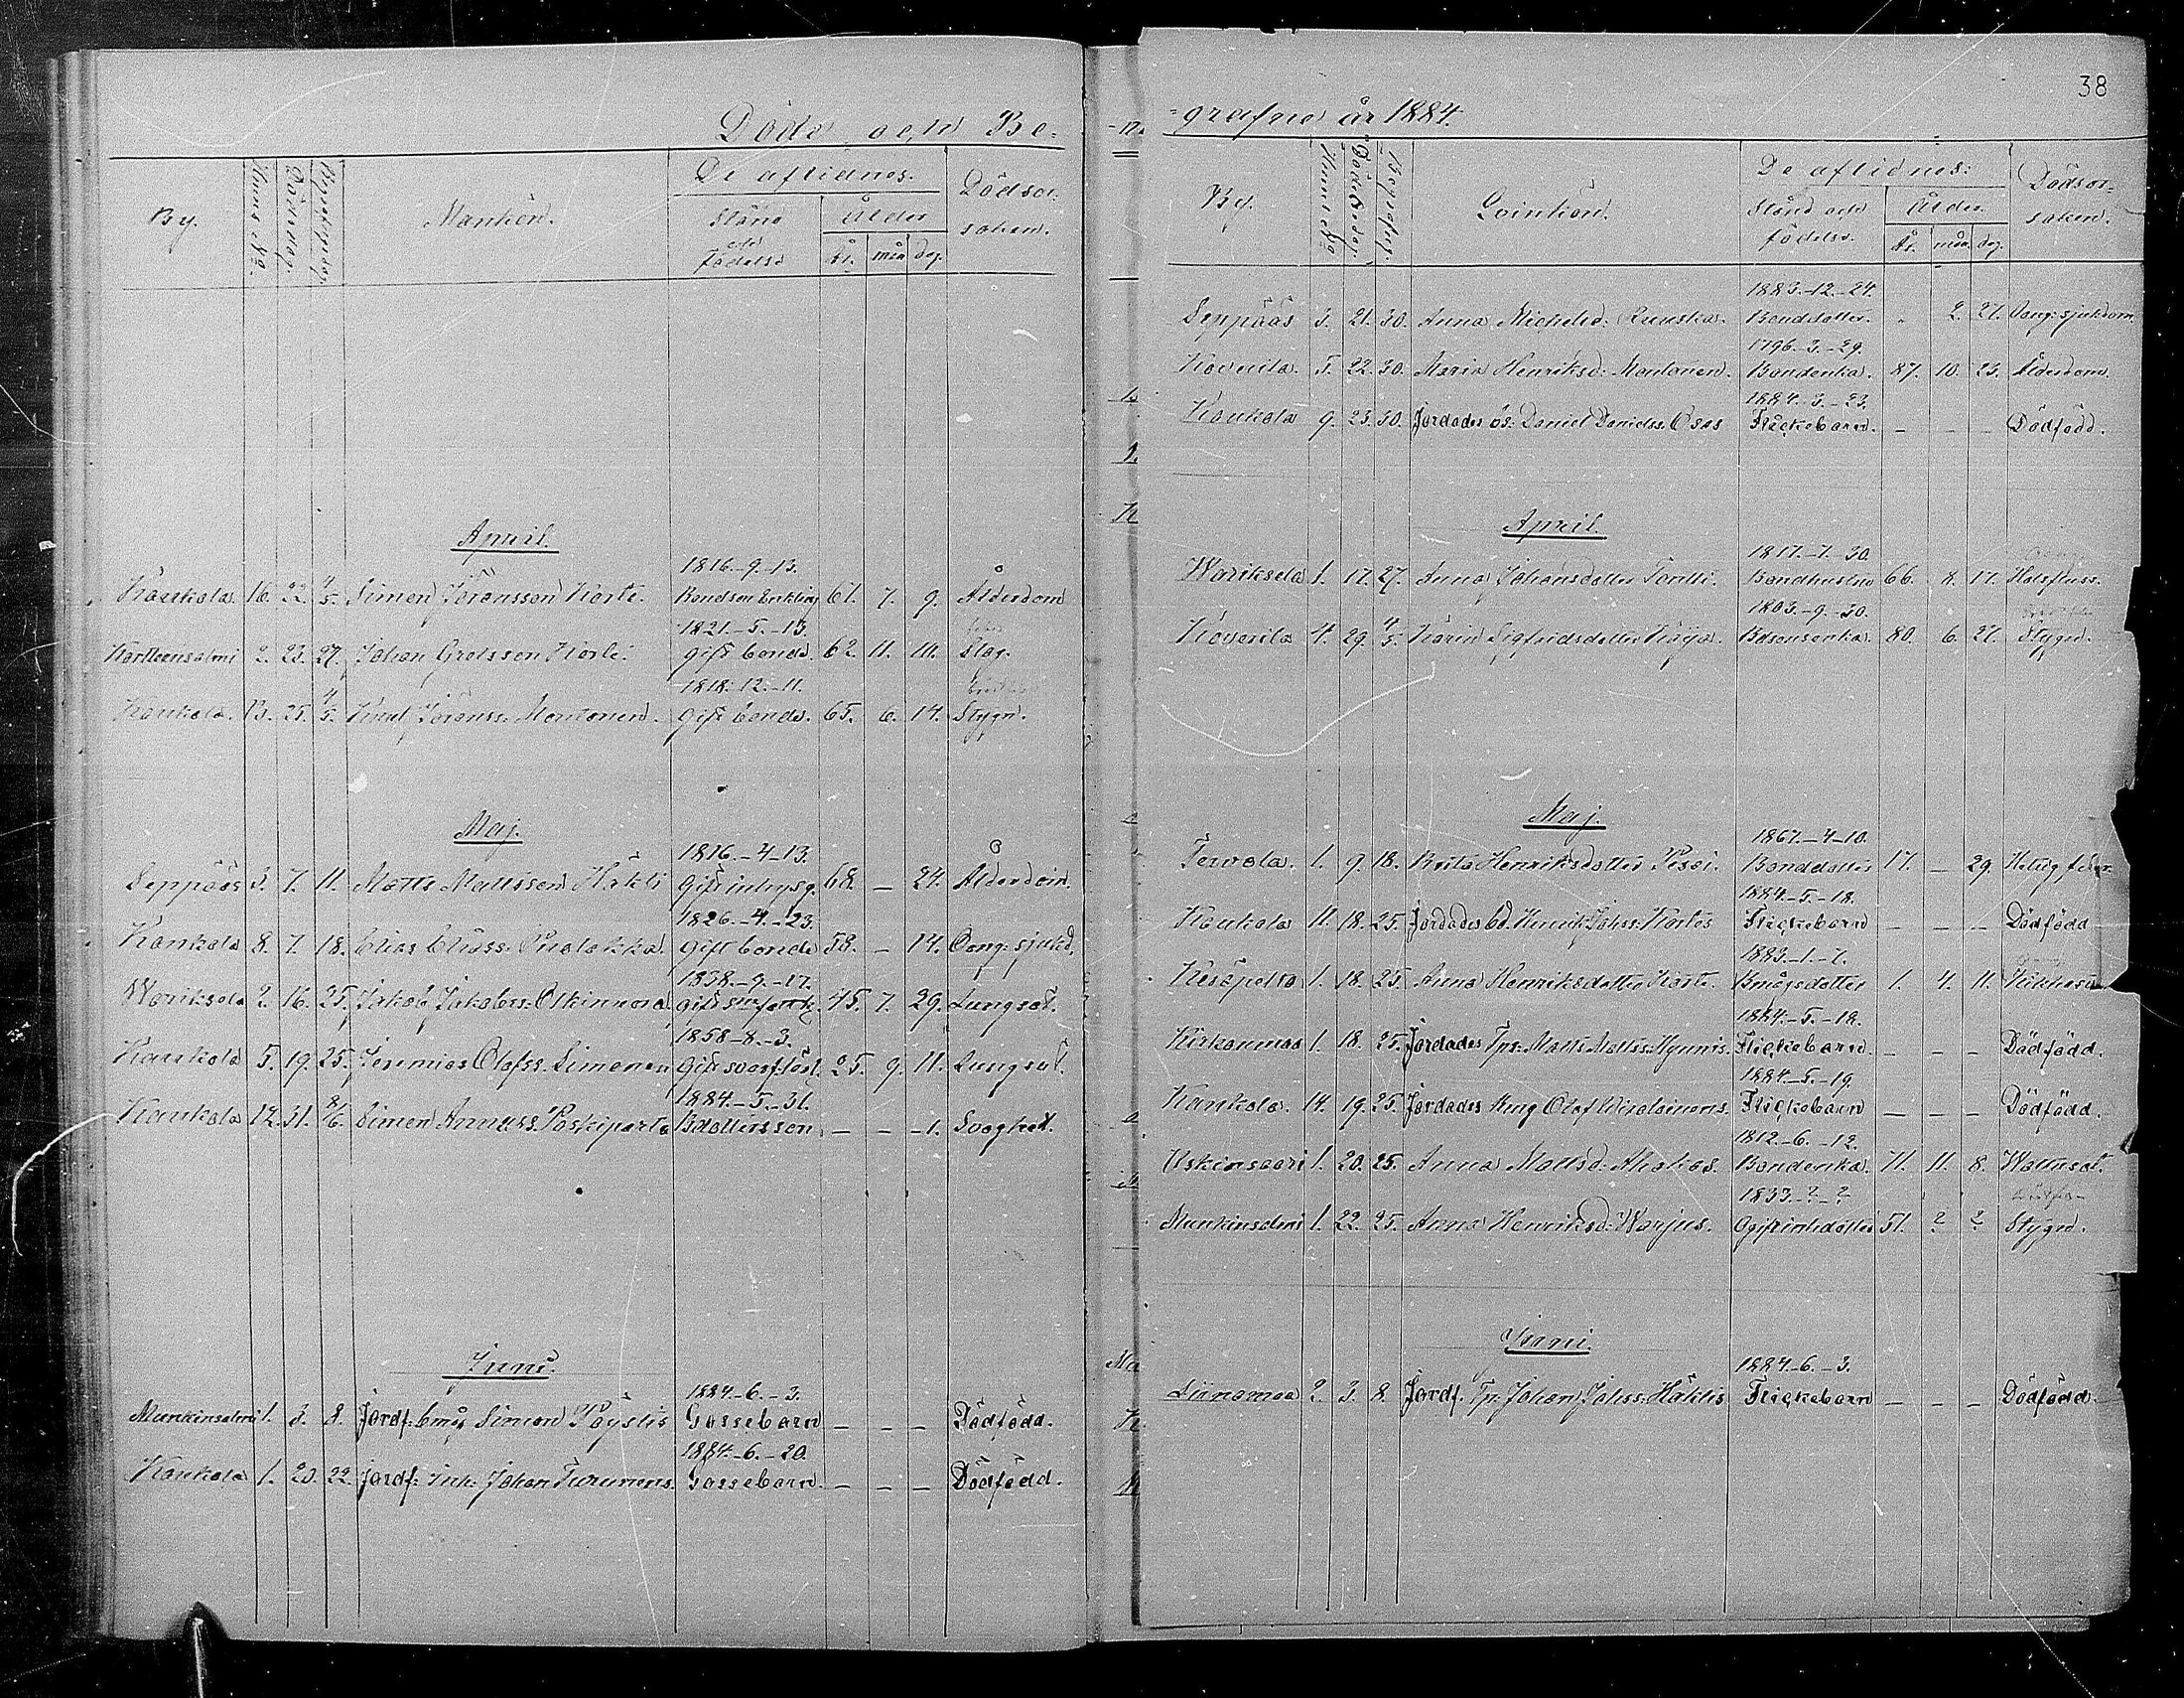 Döde och Be-
De aflidnes.
By.
Hems No.
Dödsdag.
Begrafn:dag.
Mankön.
Stånd och födelse
Ålder
År. mån dag.
Dödsor-
saken.
April.
1816.-9.-13.
Kaukola. 16. 22. 4/5. Simon Göransson Korte. Bondson Enkling 67. 7. 9. Ålderdom
1821.-5.-13.
Karttensalmi 2. 23. 27. Johan Grelsson Korte. Gift bonde. 62. 11. 10. Slag.
1818.-12.-11.
Kaukola. 13. 25. 4/5. Knut Göranss: Montonen. Gift bonde. 65. 6. 14. Stygn.
Maj.
1816.-4-13.
Seppäös 3. 7. 11. Matts Mattsson Häkli Gift inhysg. 68. — 24. Ålderdom.
1826.-4.-23.
Kaukola 8. 7. 18. Elias Eliass: Puolakka. Gift bonde 58. — 14. Oang: sjukd.
1838.-9.-17.
Warikselä 2. 16. 25. Jakob Jakobss: Olkinuora Gift 45. 7. 29. Lungsot.
1858-8.-3.
Kaukola 5. 19. 25. Jeremias Olofss. Simonen Gift 25. 9. 11. Lungsot.
1884.-5.-31.
Kaukola 12. 31. 8/6. Simon Annass. Paskiparta Bdottersson. — — -1. Svaghet.
Juni.
1884-6.-3.
Munkinsalmi 1. 3. 8. Jordf: bmåg Simon Töystis Gossebarn — — — Dödfödd.
1884.-6.-20.
Kaukola 1. 20. 22. Jordf: Inh: Johan Turunens. Gossebarn. — — — Dödfödd.
38
-grafne år 1884.
De aflidnes:
By.
Hems No
Dödsdag.
Begrafns.
Qvinkön.
Stånd och
födelse.
Ålder.
År. mån. dag.
Dödsor-
saken.
1883.-12.-24.
Seppäös 3. 21. 30. Anna Michelsd: Ruuska. Bonddotter. - 2. 27. Oang: sjukdom.
1796.-3.-29.
Koverila. 5. 22. 30. Maria Henriksd: Montonen. Bondenka. 87. 10. 23. Ålderdom.
1884.-3.-23.
Kaukola 9. 23. 30. Jordades ös: Daniel Daniels: Osas Flickebarn. — — — Dödfödd.
April.
1817.-7.-30.
Warikselä 1. 17. 27. Anna Johansdotter Tontti. Bondhustru 66. 8. 17. Halsfluss.
1803.-9.-30.
Koverila 4. 29. 4/5. Karin Sigfridsdotter Käyä. Bdsonsenka. 80. 6. 27. Stygn.
Maj.
1867.-4-10.
Tervola. 1. 9. 18. Beata Henriksdotter Pesoi. Bonddotter 17. — 29. Hetsig feber.
1884.-5.-18.
Kaukola 11. 18. 25. Jordades bd. Henrik Johss: Kortes Flickebarn — — — Dödfödd
1883.-1.-7.
Kesäpelto 1. 18. 25. Anna Henriksdotter Korte. Bmågsdotter 1. 4. 11. Kikhosta
1884.-5.-18.
Kirkonmaa 1. 18. 25. Jordades Tpr: Matts Mattss: Hynnis. Flickebarn. — — — Dödfödd.
1884.-5.-19.
Kaukola. 14. 19. 25. Jordades bmg Olof Wirolainens. Flickebarn — — — Dödfödd.
1812.-6.-12.
Uskinsaari 1. 20. 25. Anna Mattsd: Ahokas. Bondenka. 71. 11. 8. Wattusot.
1833.-?-?
Munkinsalmi 1. 22. 25. Anna Henriksd: Warjus. Ogift inhdotter 51. ? ? Stygn.
Juni.
1884.-6.-3.
Liinamaa 2. 3. 8. Jordf. Tp: Johan Johss: Häklis Flickebarn — — — Dödfödd